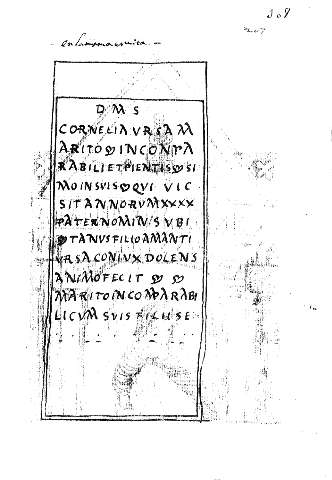 309
en la misma ermita
D M S
CORNELIA VRSA M
ARITO ❦ INCONPA
RABILI ET PIENTIS ❦ SI
MO IN SVIS ❦ QVI VIC
SIT ANNORVM XXXX
PATER NOMINI SVBI
❦ TANVS FILIO AMANTI
VRSA CONIVX DOLENS
ANIMO FECIT ❦ ❦
MARITO INCOMPARABI
LI CVM SVIS FILIIS E